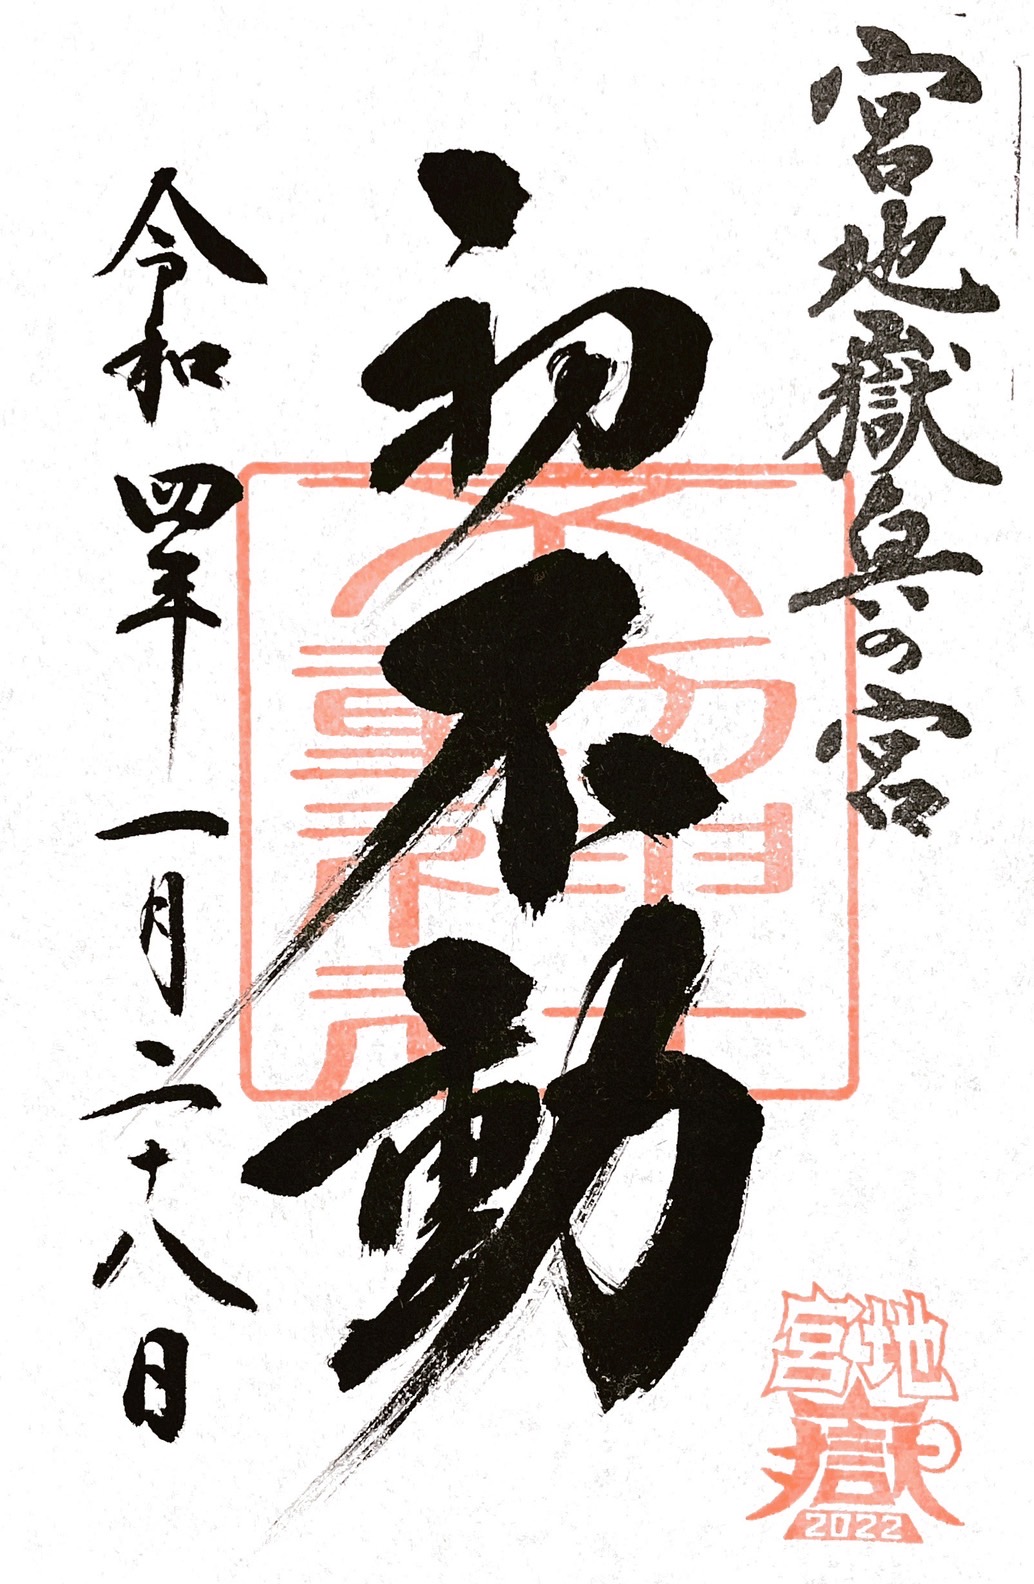 宮地嶽奥の宮
初不動
令和四年一月二十八日
不動神社
初開
宮地
嶽
2022